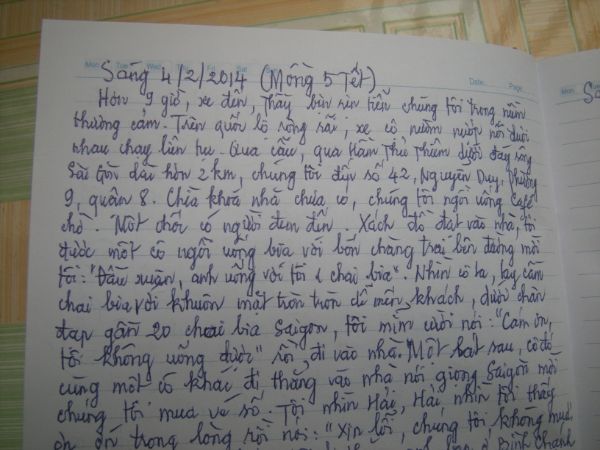 Mon Tue Wed Date: Page Mon
Sáng 4/2/2014 (Mồng 5 Tết)
Hơn 9 giờ, xe đến, Thầy bịn rịn tiễn chúng tôi trong niềm
thương cảm. Trên quốc lộ rộng rãi, xe cộ nườm nượp nối đuôi
nhau chạy liên tục. Qua cầu, qua Hầm Thủ Thiêm dưới đáy sông
Sài Gòn dài hơn 2 km, chúng tôi đến số 42, Nguyễn Duy, phường
9, quận 8. Chìa khoá nhà chưa có, chúng tôi ngồi uống café
chờ. Một chốc có người đem đến. Xách đồ đạt vào nhà, tôi
được một cô ngồi uống bia với bốn chàng trai bên đường mời
tôi: "Đầu xuân, anh uống với tôi 1 chai bia". Nhìn cô ta, tay cầm
chai bia với khuôn mặt tròn tròn dễ mến khách, dưới chân
đạp gần 20 chai bia Saigon, tôi mỉm cười nói: "Cám ơn,
tôi không uống được" rồi đi vào nhà. Một lát sau, cô đó
cùng một cô khác đi thẳng vào nhà nói giọng Saigon mời
chúng tôi mua vé số. Tôi nhìn Hải, Hải nhìn tôi thấy
trong lòng rồi nói: "Xin lỗi, chúng tôi không mua"
ở Bình Chánh